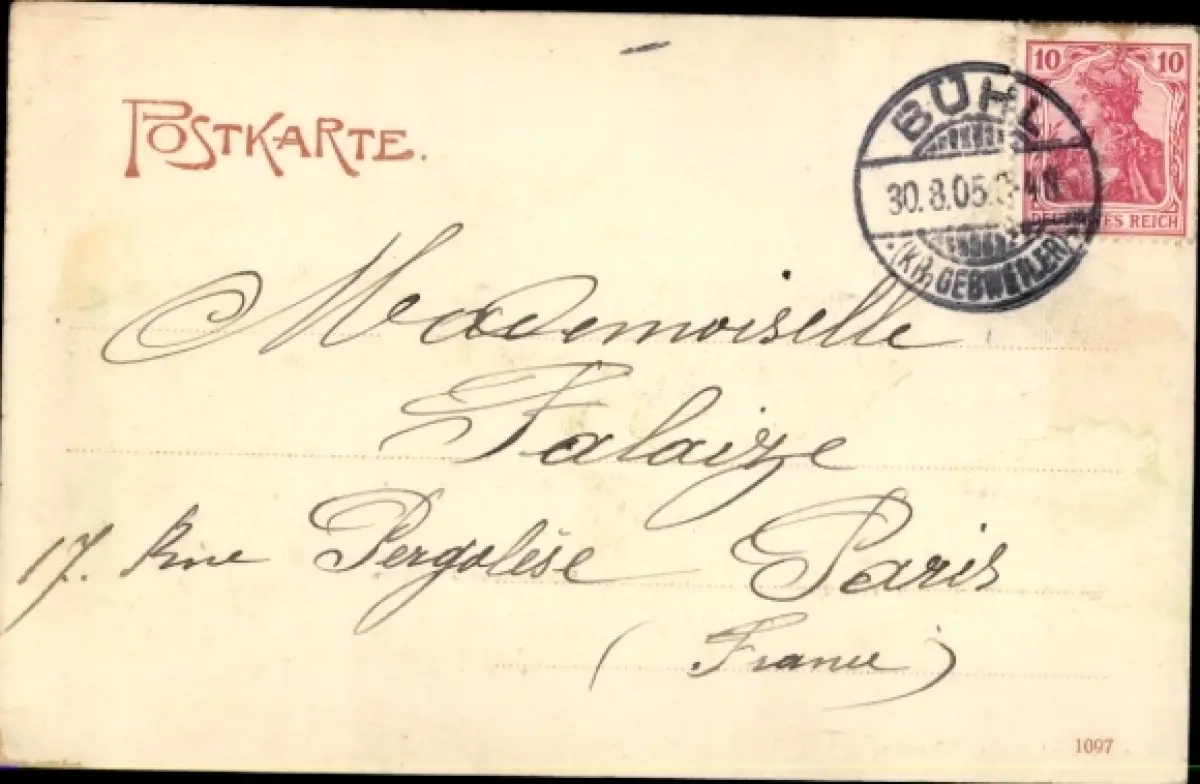 POSTKARTE.
10 10
DEUTSCHES REICH
BÜHL
30.8.05.
(Kr. GEBWEILER)
Mademoiselle
Falaize
17. Rue Pergolèse Paris
(France)
1097